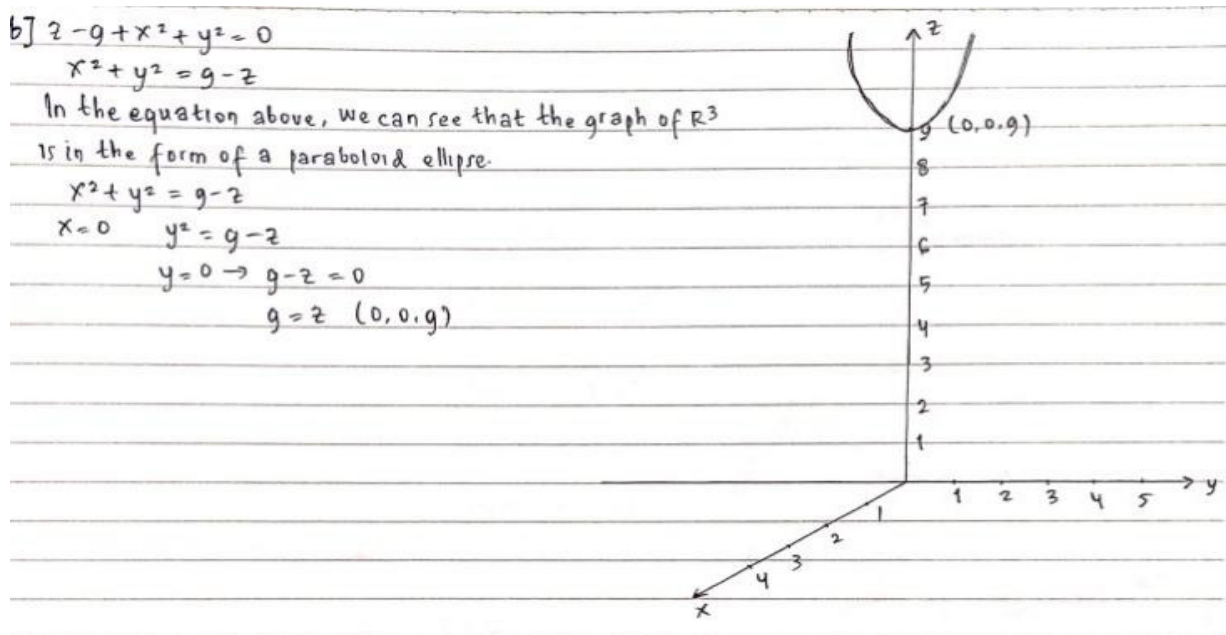 b] z - 9 + x² + y² = 0
x² + y² = 9 - z
In the equation above, we can see that the graph of R³
is in the form of a paraboloid ellipse.
x² + y² = 9 - z
x = 0 y² = 9 - z
y = 0 → 9 - z = 0
9 = z (0,0,9)
z
9 (0,0,9)
8
7
6
5
4
3
2
1
1 2 3 4 5 y
1
2
3
4
x